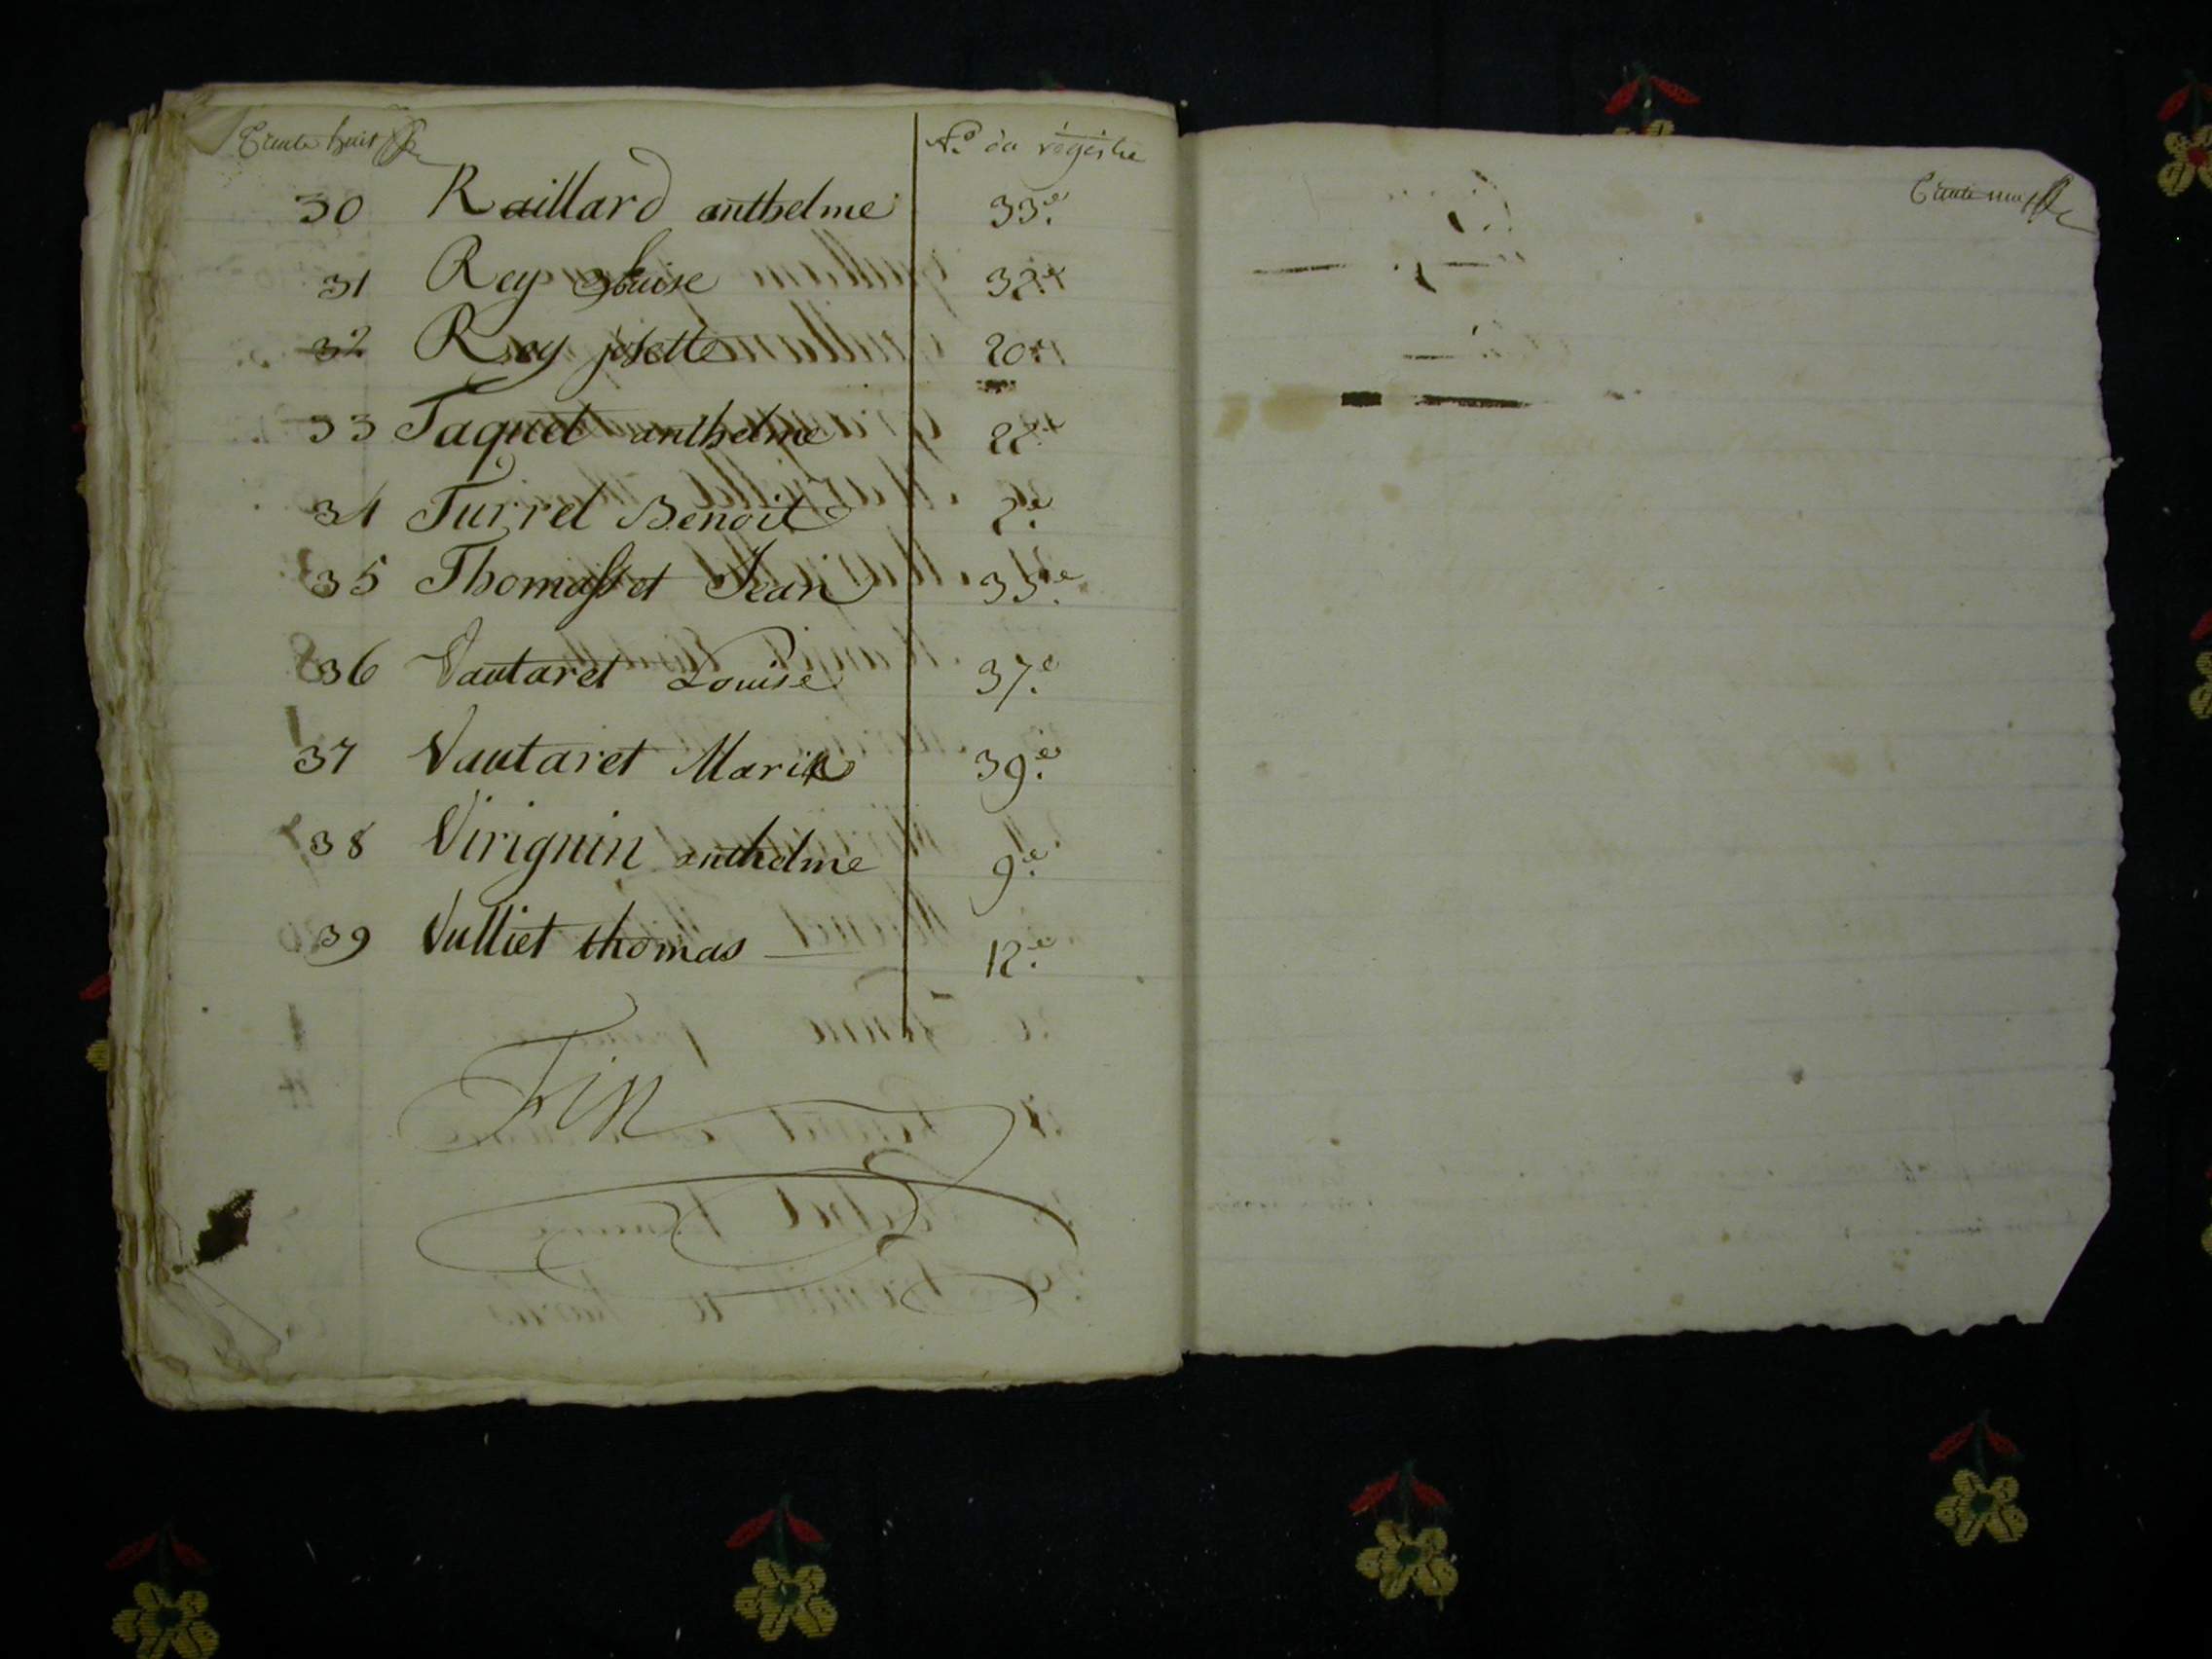 Trente huit
N.o du régistre
30 Raillard anthelme 33.e
31 Rey Louise 32.e
32 Rey josette 20.e
33 Taquet anthelme 22.e
34 Turrel Benoit 2.e
35 Thomasset Jean 35.e
36 Vautaret Louise 37.e
37 Vautaret Marie 39.e
38 Virignin anthelme 9.e
39 Vulliet thomas 12.e
Fin
Trente neuf